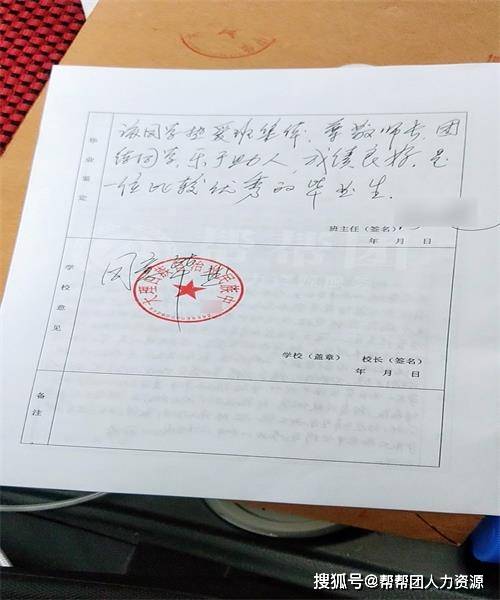 毕业鉴定
该同学热爱班集体，尊敬师长，团
结同学，乐于助人，成绩良好，是
一位比较优秀的毕业生。
班主任（签名）
年 月 日
学校意见
同意毕业
学校（盖章） 校长（签名）
年 月 日
备注
搜狐号@帮帮团人力资源